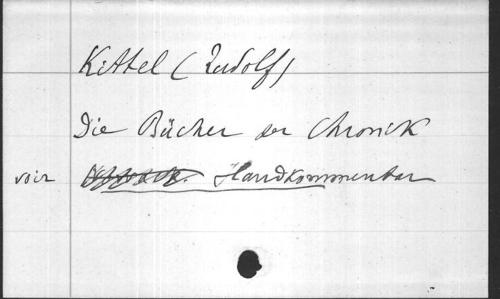 Kittel (Rudolf)
Die Bücher der Chronick
voir Handkommentar